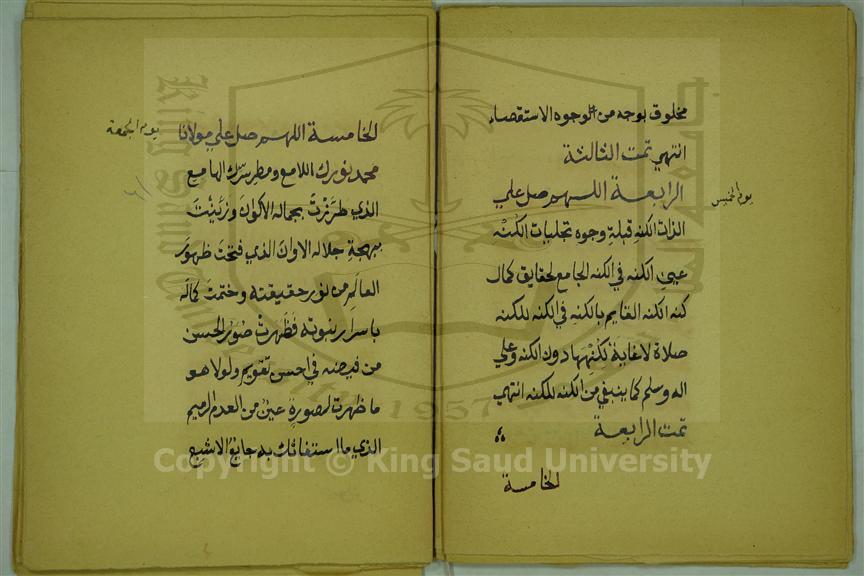 مخلوق بوجه من الوجوه الاستقصاء
انتهي تمت الثالثة
الرابعة اللهم صل علي
يوم الخميس
الذات الكنه قبلة وجوه تجليات الكنه
عين الكنه في الكنه الجامع لحقايق كمال
كنه الكنه القايم بالكنه في الكنه للكنه
صلاة لا غاية لكنهها دون الكنه وعلي
اله وسلم كما ينبغي من الكنه للكنه انتهي
تمت الرابعة
الخامسة
يوم الجمعة
الخامسة اللهم صل علي مولانا
محمد نورك اللامع ومظهر سرّك الهامع
الذي طرّزتَ بجماله الأكوان وزيّنتَ
ببهجةِ جلاله الاوان الذي فتحتَ ظهورَ
العالمِ من نور حقيقته وختمتَ كماله
باسرارِ نبوته فظهرتْ صُوَرُ الحسن
من فيضه في احسن تقويم ولولا هو
ما ظهرت لصورةٍ عينٌ من العدم الرميم
الذي ما استغاثك به جايعٌ الا شبع
King Saud University
1957
Copyright © King Saud University